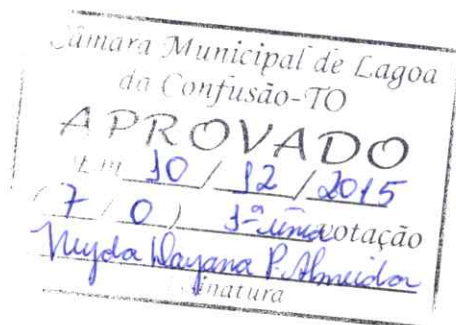 Câmara Municipal de Lagoa
da Confusão-TO
APROVADO
Em 10 / 12 / 2015
( 7 / 0 ) 1ª única votação
Neyda Dayana P. Almeida
Assinatura